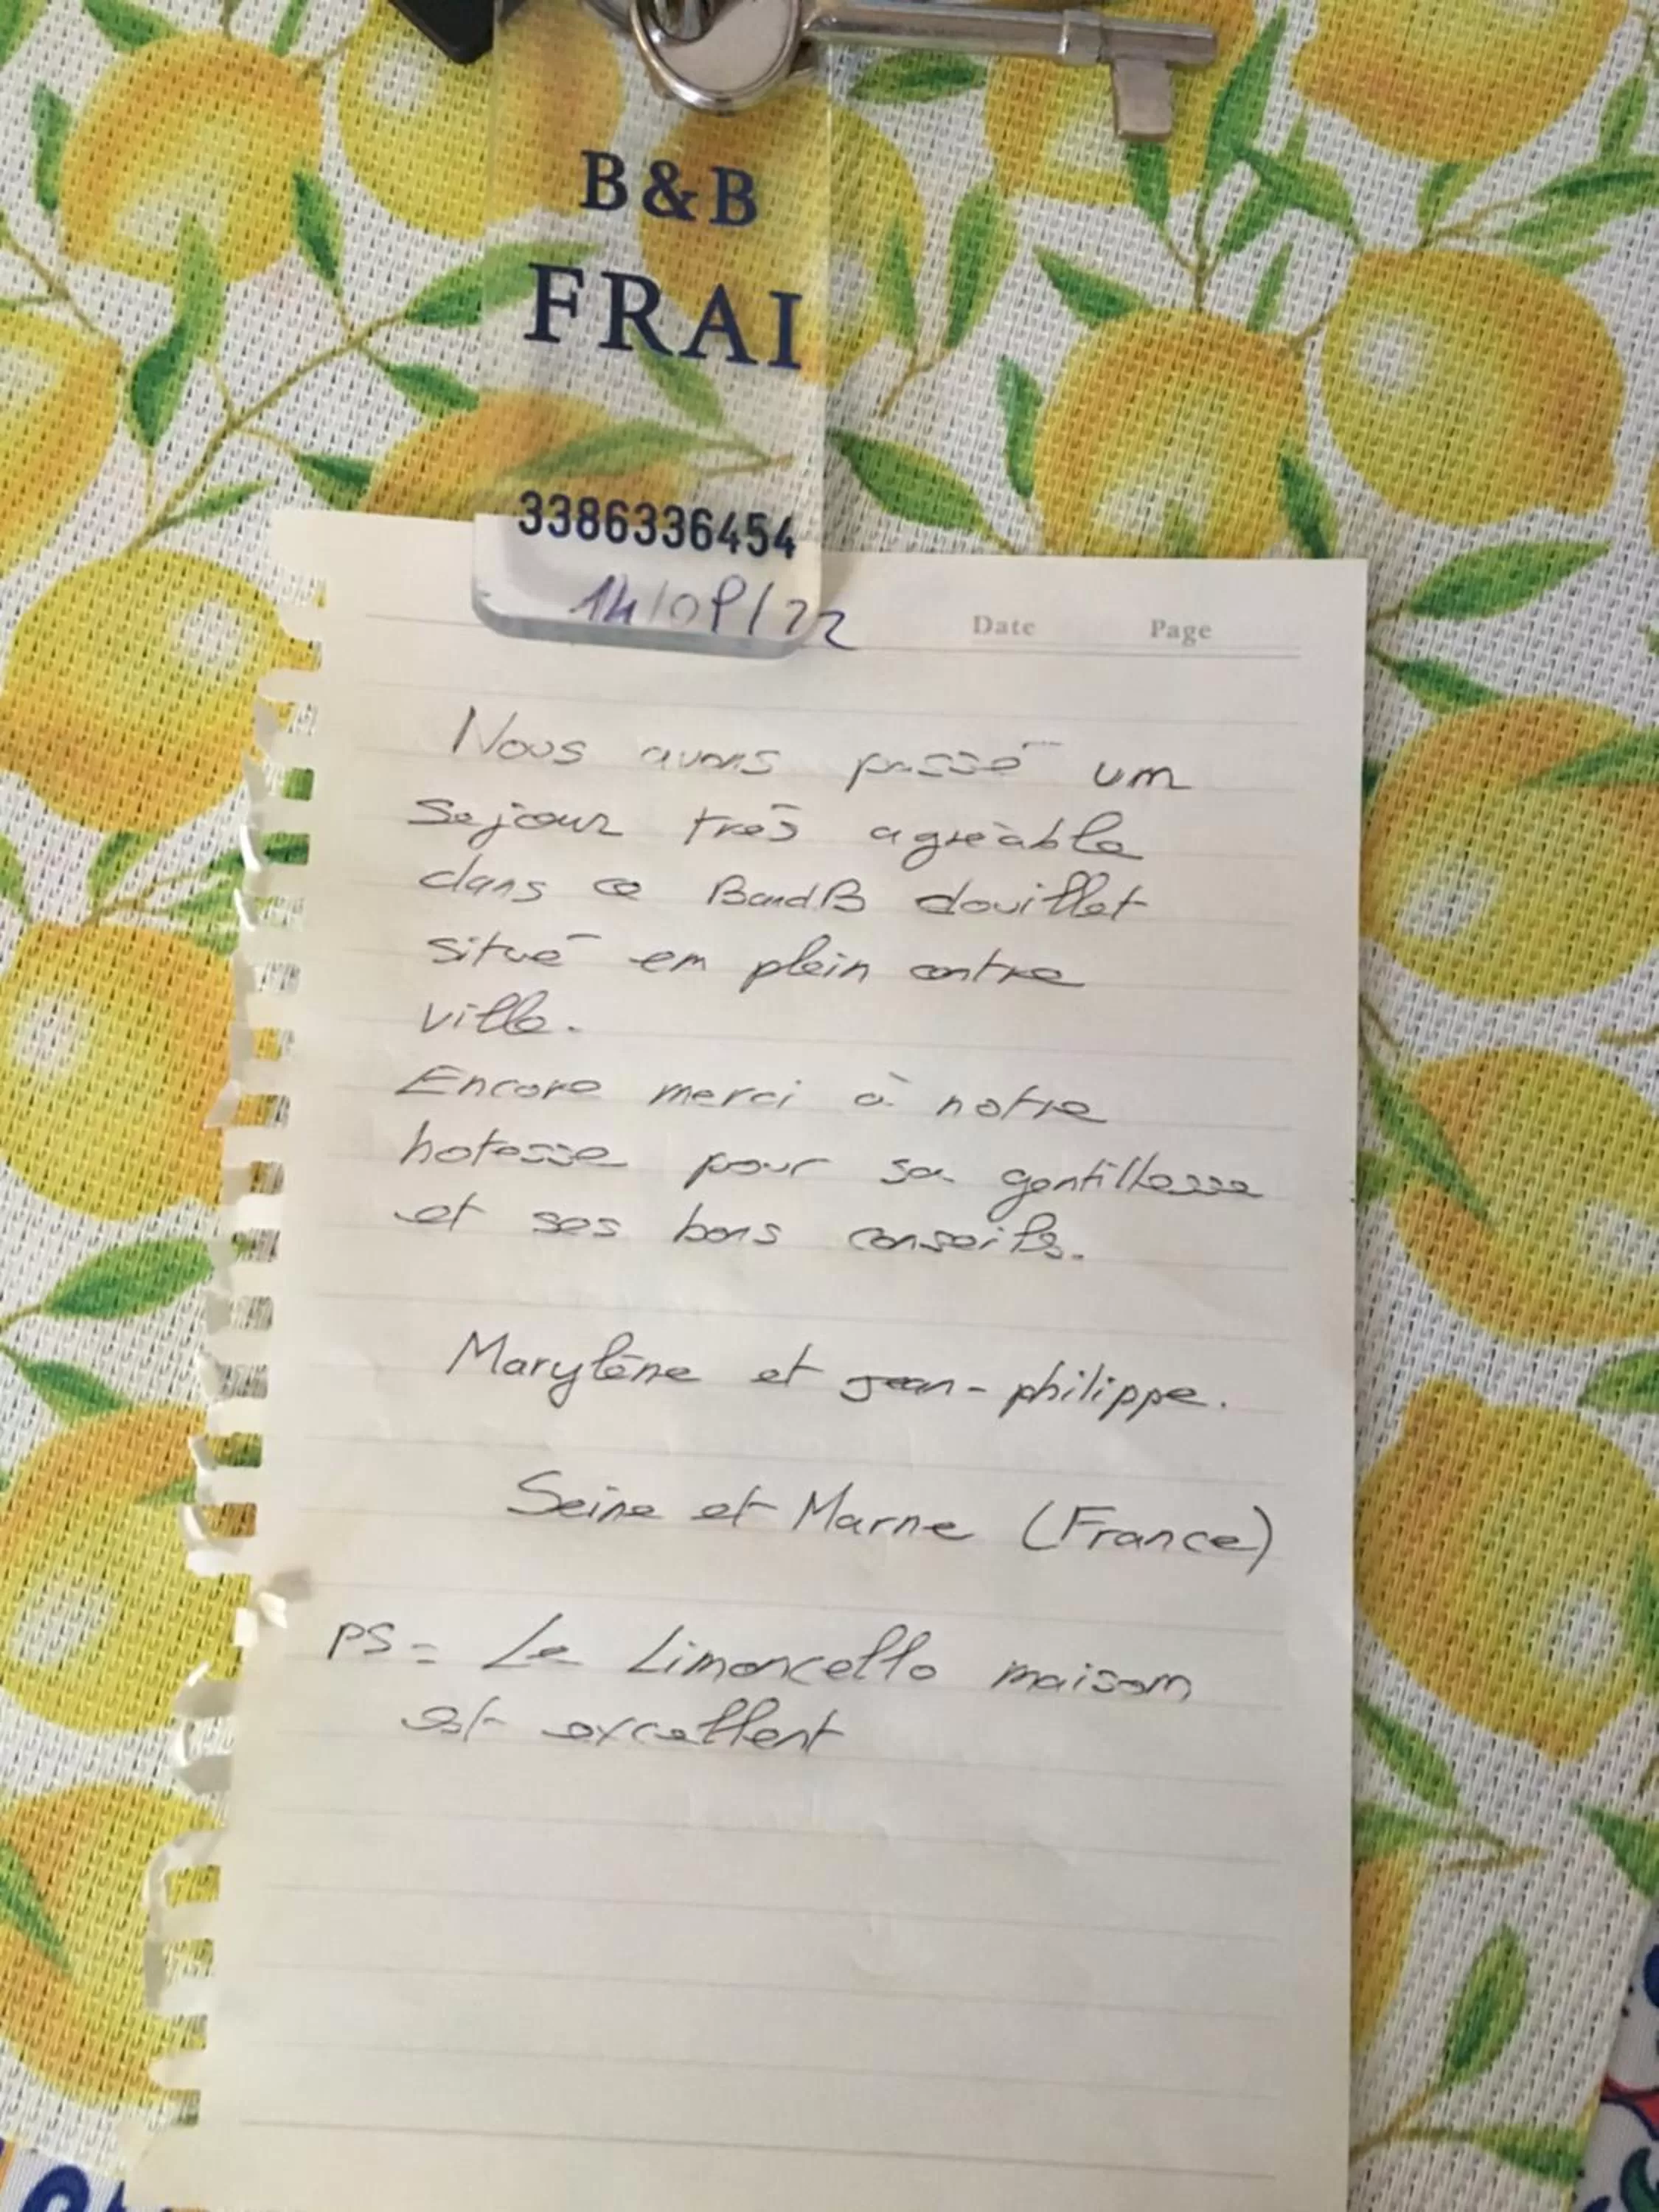 B&B
FRAI
3386336454
14/09/22
Date Page
Nous avons passé un
sejour très agréable
dans ce BandB douillet
situé en plein centre
ville.
Encore merci à notre
hotesse pour sa gentillesse
et ses bons conseils.
Marylène et jean-philippe.
Seine et Marne (France)
PS= Le Limoncello maison
est excellent